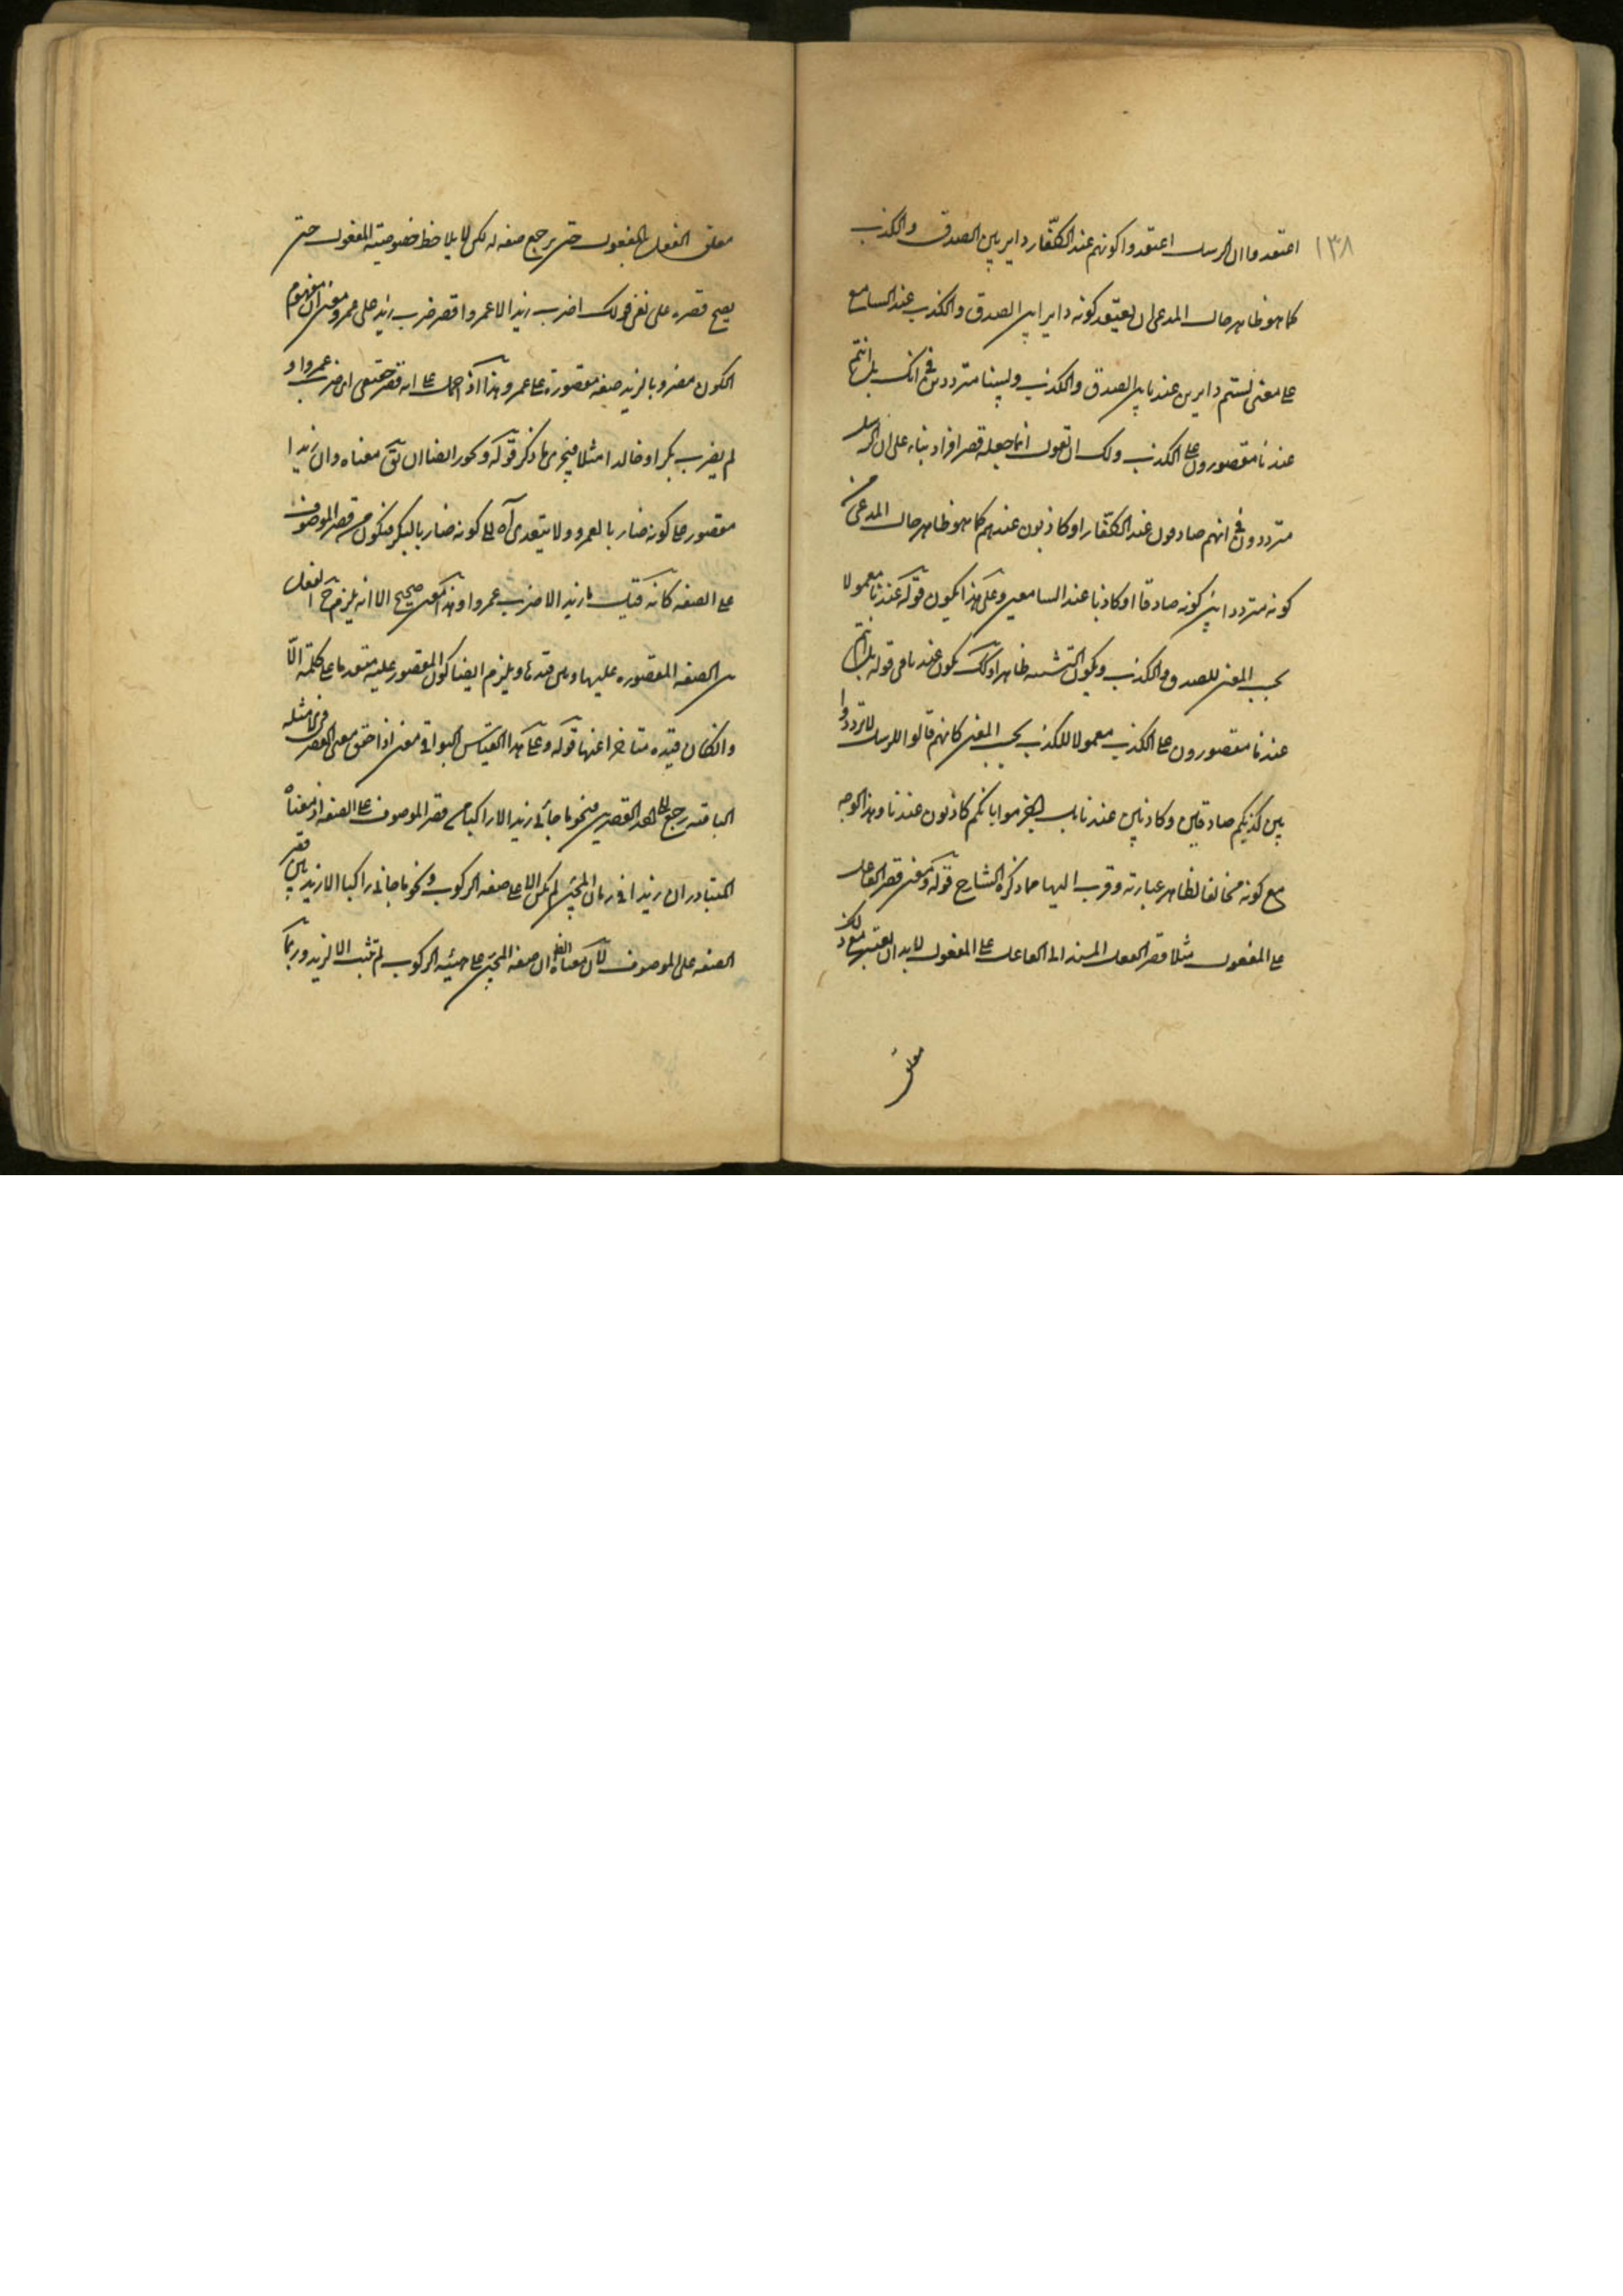 ١٣٨
اعتقدوا ان الرسل اعتقدوا كونهم عند الكفّار دايرين بين الصدق والكذب
كما هو ظاهر حال المدعى ان يعتقد كونه دايرا بين الصدق والكذب عند السامع
على معنى لستم دايرين عندنا بين الصدق والكذب ولسنا مترددين في ذلك بل انتم
عندنا مقصورون على الكذب ولك ان تقول انما جعله قصر افراد بناء على ان الرسل
مترددون في انهم صادقون عند الكفّار او كاذبون عندهم كما هو ظاهر حال المدعى من
كونه مترددا بين كونه صادقا او كاذبا عند السامعين وعلى هذا يكون قوله عندنا معمولا
بحسب المعنى للصدق والكذب ويكون ظاهرا وكك يكون عندنا في قوله بل انتم
عندنا مقصورون على الكذب معمولا للكذب بحسب المعنى كانهم قالوا للرسل لا تترددوا
بين كونكم صادقين وكاذبين عندنا بل اجزموا بانكم كاذبون عندنا وهذا الوجه
مع كونه مخالفا لظاهر عبارته وقرب اليها مما ذكره الشارح قوله ومعنى قصر الفاعل
على المفعول مثلا قصر الفعل المسند الى الفاعل على المفعول لا بد ان يعتبر مع ذلك
معلق
الفعل بالمفعول حتى يرجع صفه له لكن لا يلاحظ خصوصية المفعول حتى
يصح قصره على نفس قولك ما ضرب زيد الا عمروا قصر ضرب زيد على عمرو معنى ان مفهوم
الكون مضروبا لزيد صفه مقصورة على عمرو وهذا اذا حمل على انه قصر حقيقى اى ضرب عمروا و
لم يضرب بكرا وخالدا مثلا فيجرى ما ذكر قوله ويجوز ايضا ان يق معناه وان زيدا
مقصور على كونه ضاربا لعمرو ولا يتعدى اه الى كونه ضاربا لبكر فيكون من قصر الموصوف
على الصفه كانه قيل ما زيد الا ضرب عمروا وهذا معنى صحيح الا انه يلزم ح الفصل
بين الصفه المقصوره عليها وبين قيدها ويلزم ايضا كون المقصور عليه متقدما على كلمة الّا
وان كان قيده متاخرا عنها قوله وعلى هذا القياس البواقى معنى اذا حقق معنى القصر في امثلة
الباقيه رجع الى احد القصرين فنحو ما جاءنى زيد الا راكبا من قصر الموصوف على الصفه اذ معناه
المتبادر ان زيدا في زمان المجئ لم يكن الا على صفه الركوب ونحو ما جاءنى راكبا الا زيد من قصر
الصفه على الموصوف لان معناه الظ ان صفه المجئ على هيئه الركوب لم تثبت الا لزيد وربما